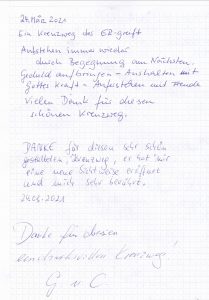 24. März 2021
Ein Kreuzweg des
Aufstehen immer wieder
durch Begegnung am Nächsten.
Geduld aufbringen - Aushalten mit
Gottes Kraft - Aufstehen mit Freude
Vielen Dank für diesen
schönen Kreuzweg.
DANKE für diesen sehr schön
gestalteten Kreuzweg, er hat mir
eine neue Sichtweise eröffnet
und mich sehr berührt.
24.03.2021
Danke für diesen
eindrucksvollen Kreuzweg!
G C